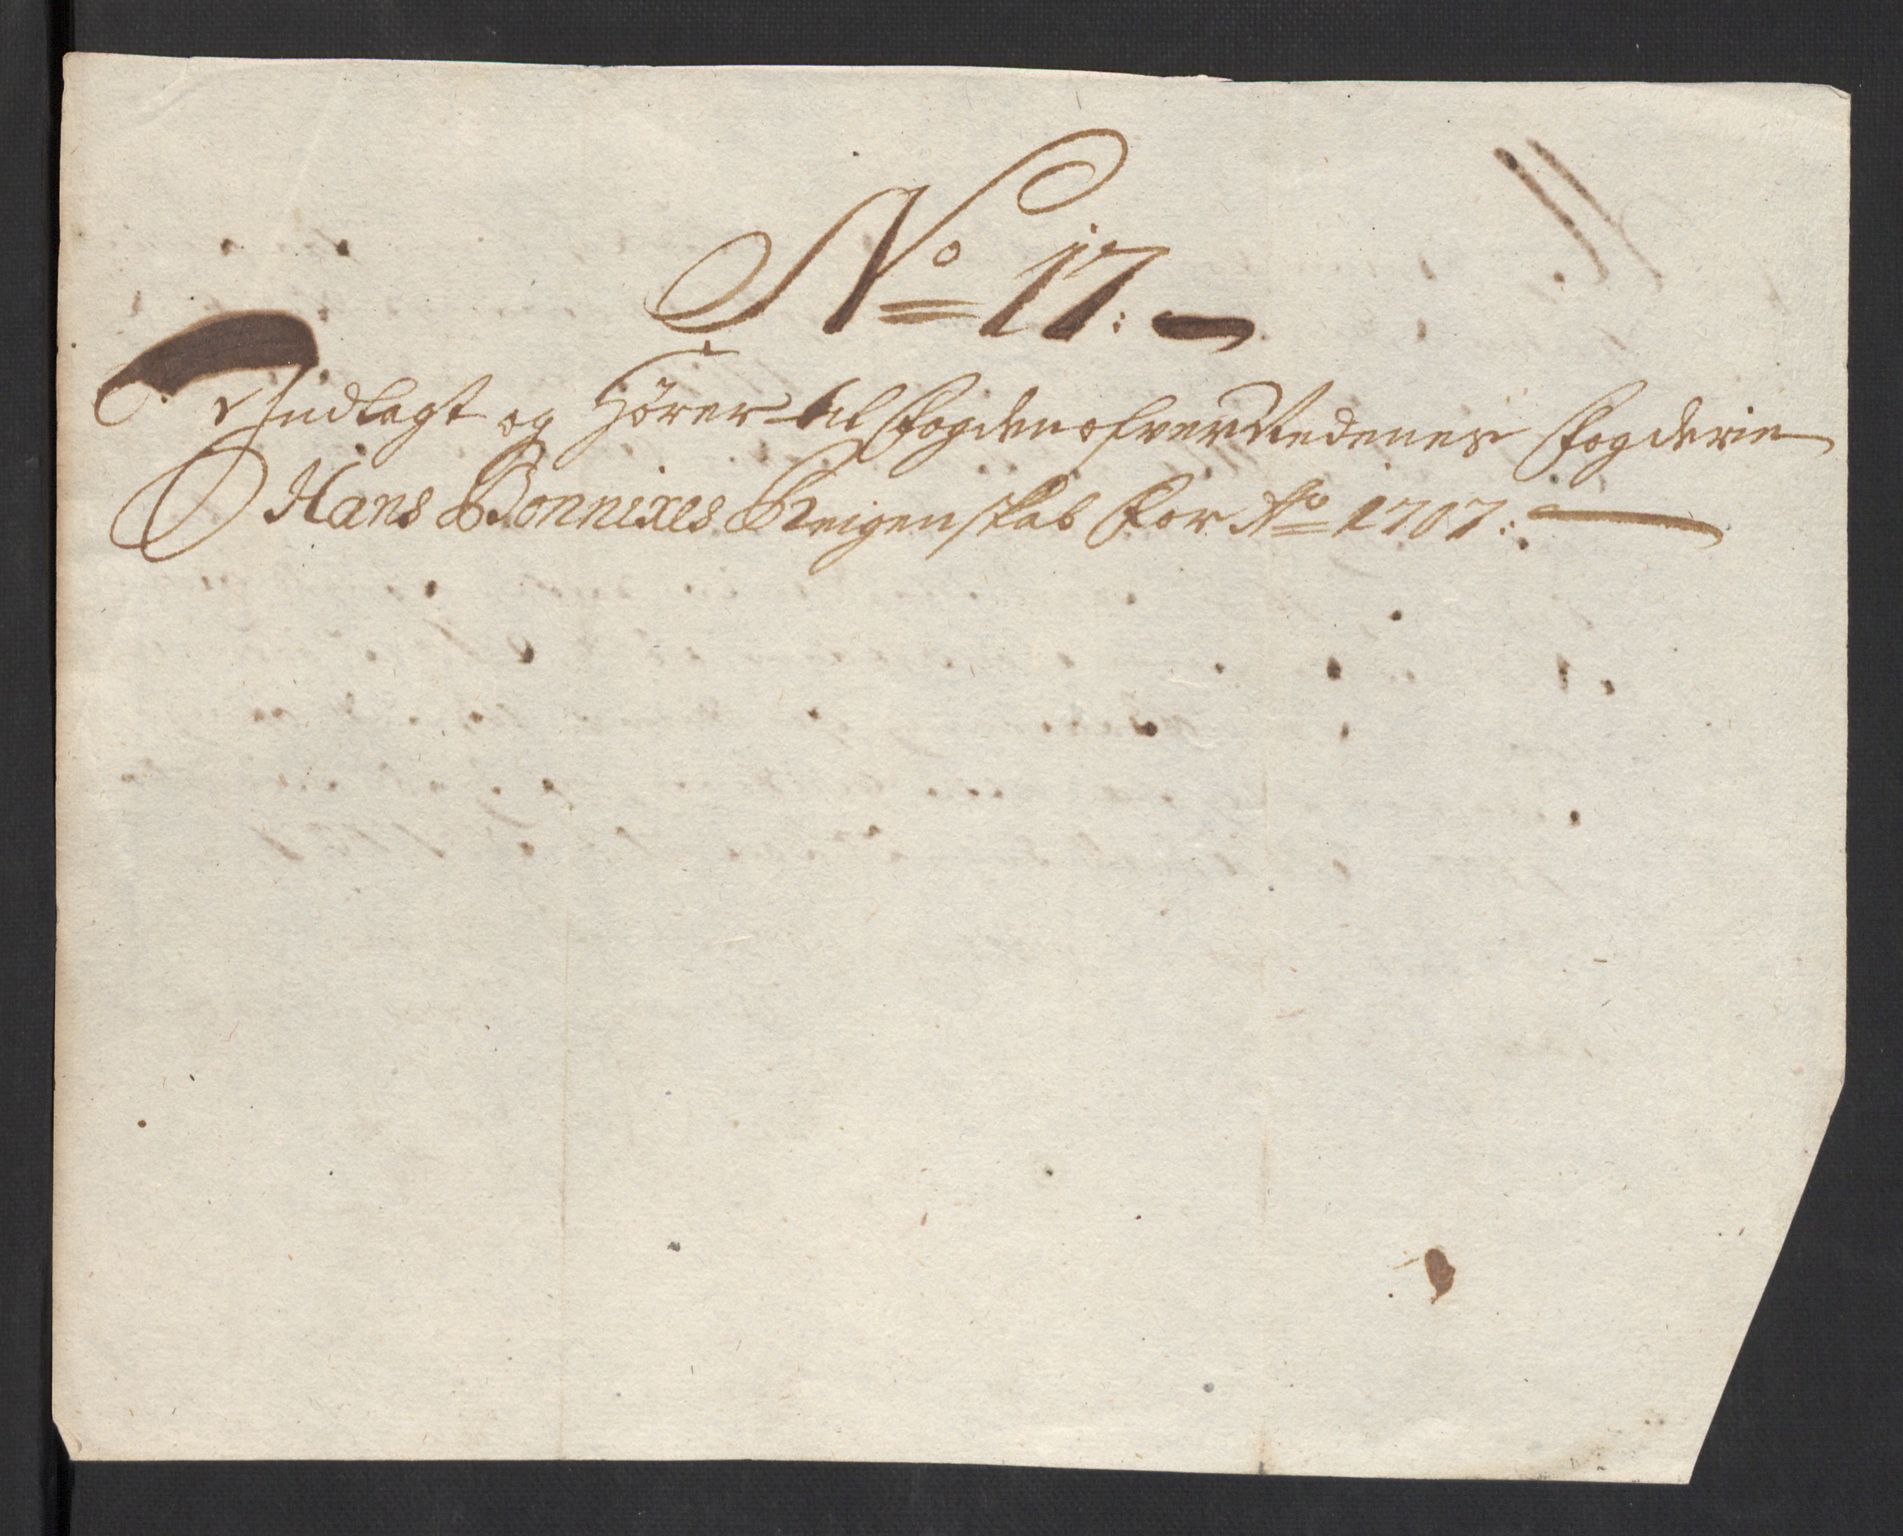 No 17:
Indlagt og Hører til Fogden ofver Nedenes Fogderie
Hans Bonnixes Reigenskab for Ao 1707: